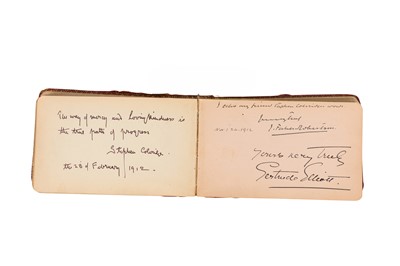 The way of mercy and Loving kindness is
the true path of progress
Stephen Coleridge.
the 23 of February 1912.
I echo my friend Stephen Coleridge's word
J. Forbes-Robertson.
Yours very truly
Gertrude Elliott.